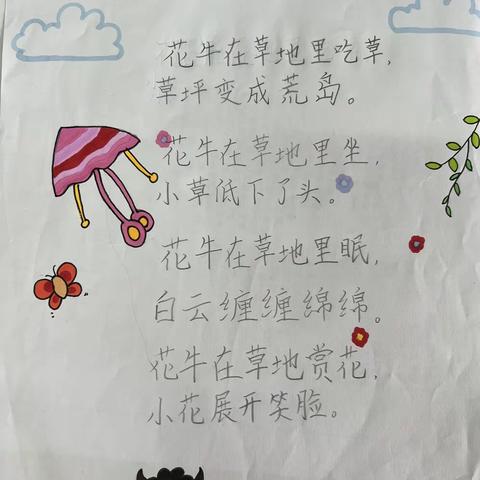 花牛在草地里吃草，
草坪变成荒岛。
花牛在草地里坐，
小草低下了头。
花牛在草地里眠，
白云缠缠绵绵。
花牛在草地赏花，
小花展开笑脸。